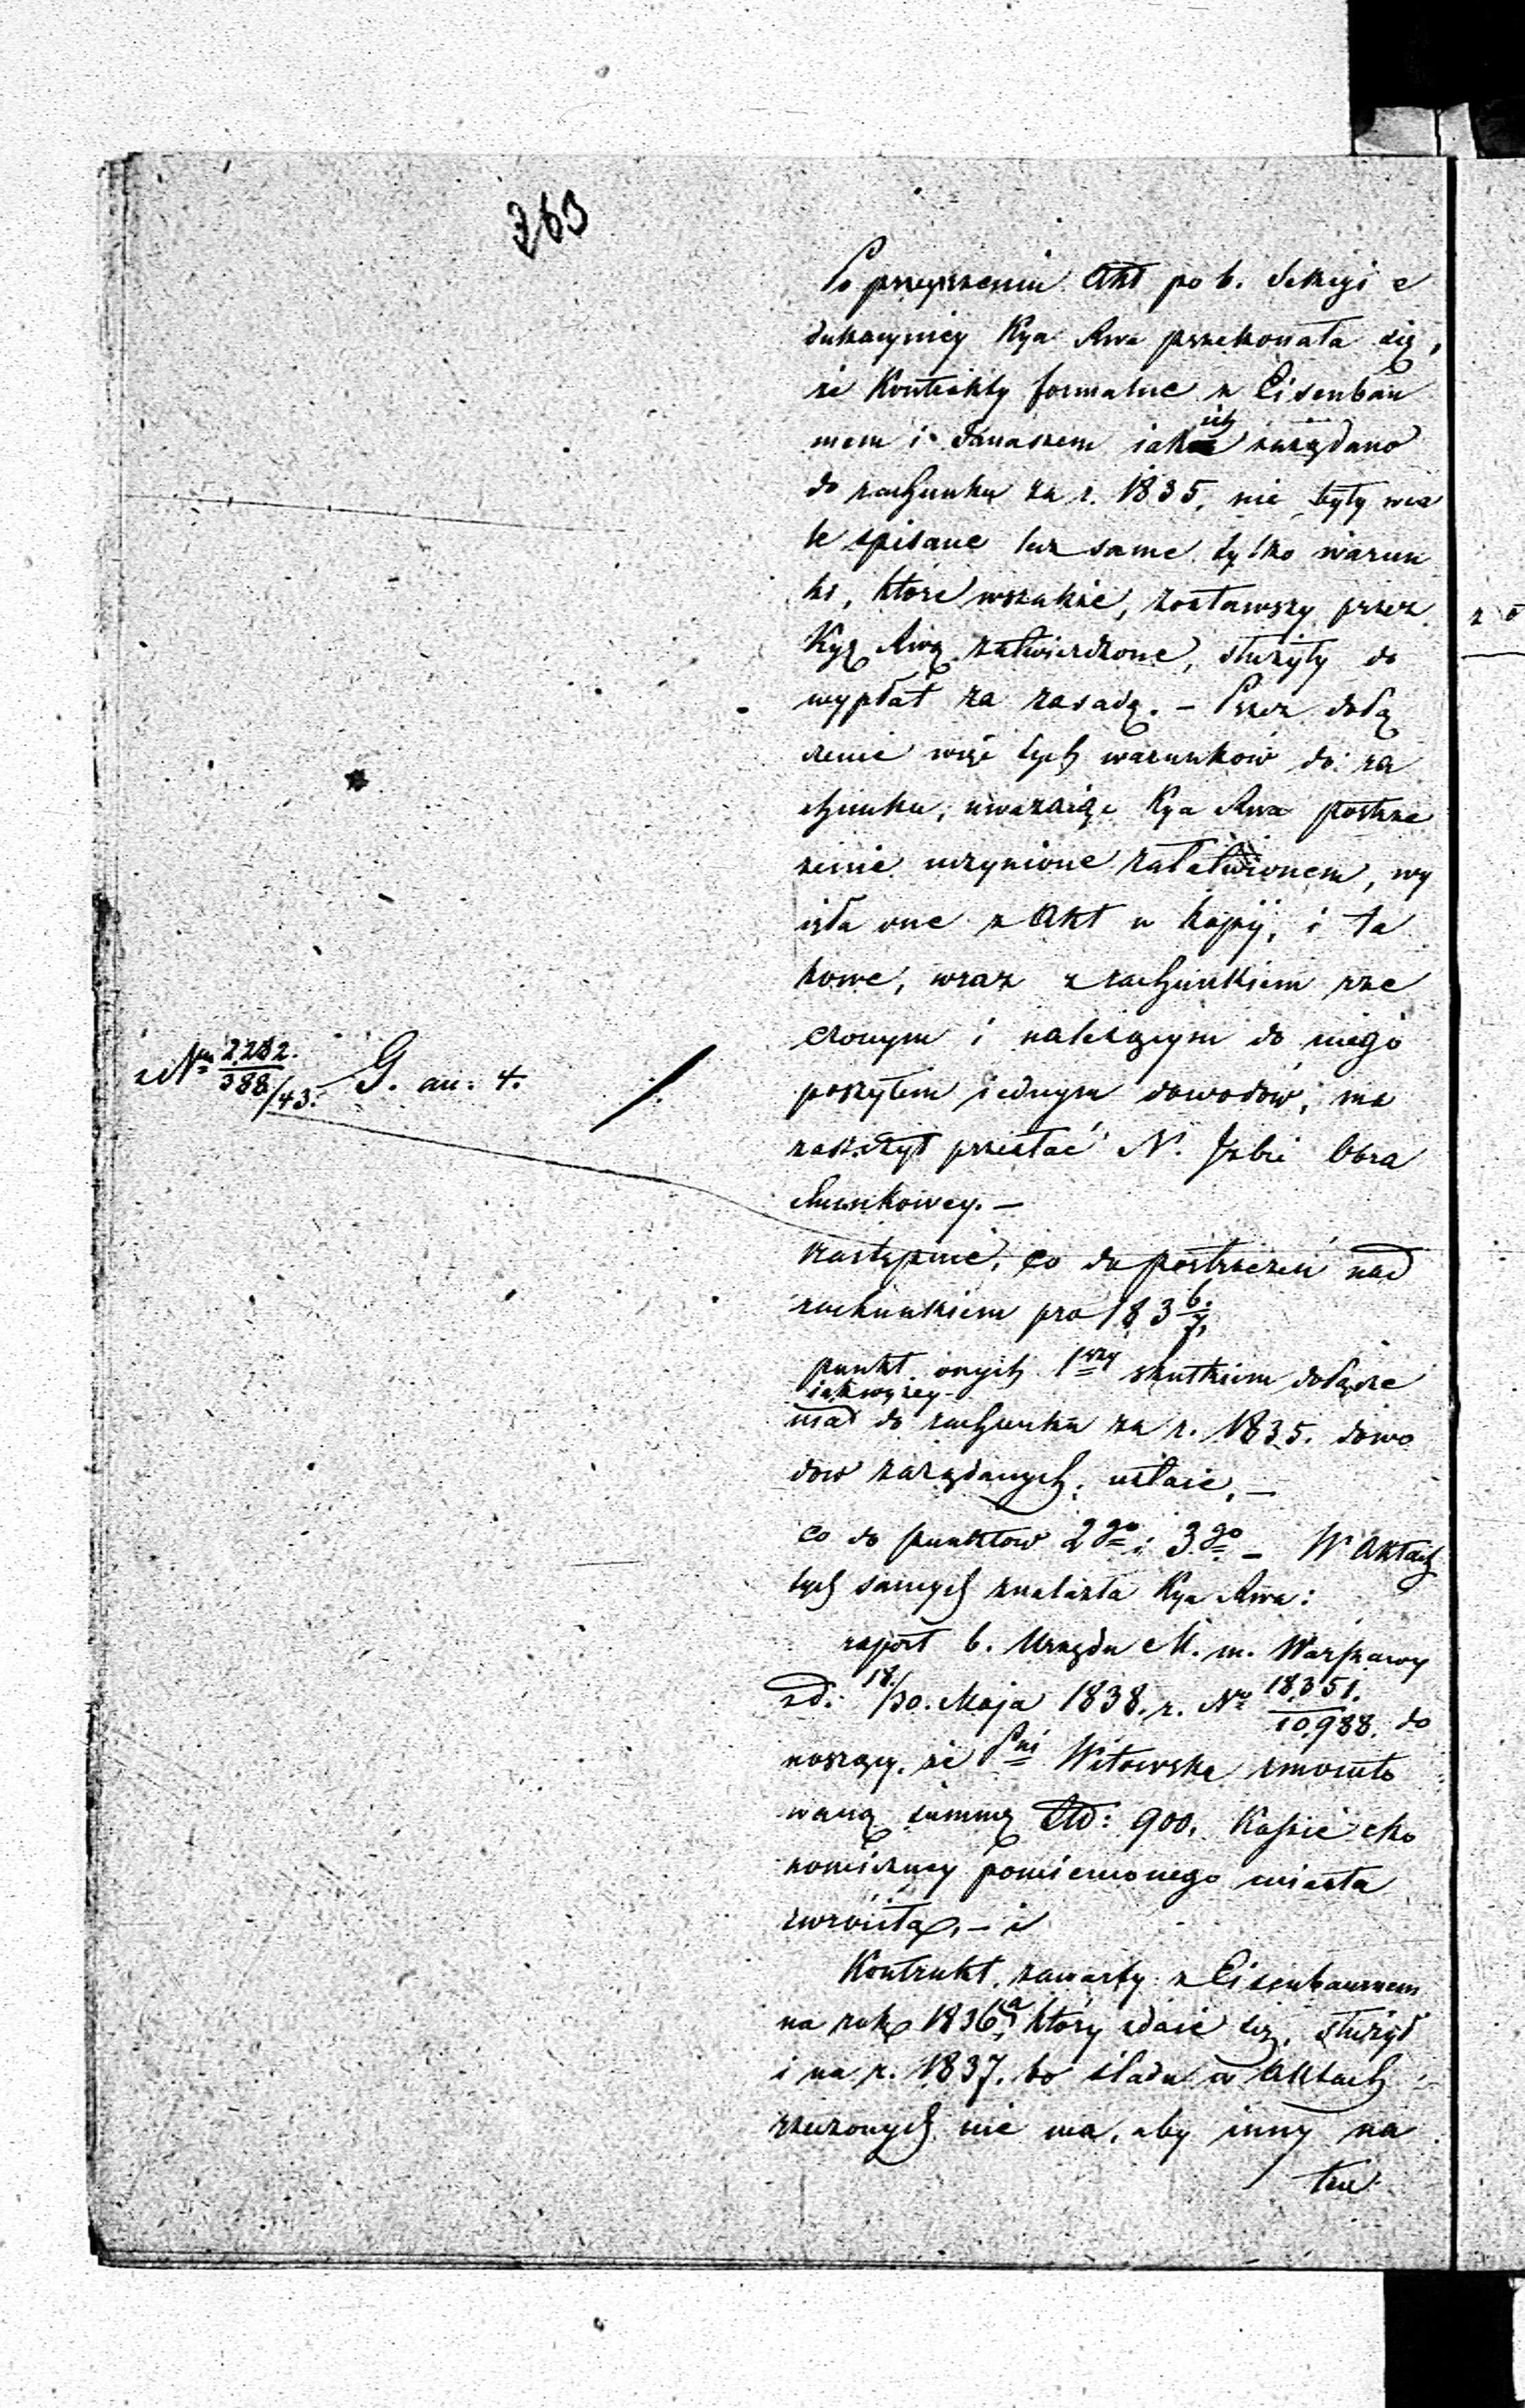 363
Po przeyrzeniu Akt po b. Sekcyi e
dukacyiney Kya Rwa przekonała się,
że Kontrakty formalne z Eisenbau
mem i Janaszem iakich zażądano
do rachunku za r. 1835, nie były wca
le spisane lecz same tylko warun
ki, które wszakże, zostawszy przez
Kyą Rwą zatwierdzone, służyły do
wypłat za zasadę. – Przez dołą
czenie więc tych warunków do ra
chunku, uważaiąc Kya Rwa postrze
żenie uczynione załatwionem, wy
ięła one z Akt w kopij, i ta
kowe, wraz z rachunkiem rze
czonym i należącym do niego
poszytem iednym dowodów, ma
zaszczyt przesłać N. Izbie Obra
chunkowey. –
z Nru 2,282.
388/43. G. an. 4.
Następnie, co do postrzeżeń nad
rachunkiem pro 183 6/7,
punkt onych 1wszy skutkiem dołącze
nia iak wyżey do rachunku za r. 1835. dowo
dów zażądanych, ustaie. –
co do punktów 2go i 3go – W Aktach
tych samych znalazła Kya Rwa:
raport b. Urzędu M. m. Warszawy
z d. 18/30. Maja 1838. r. Nro 18,351./10,988. do
noszący, że Pni Witowska
waną summę Złp: 900. Kassie eko
nomiczney pomienionego miasta
zwróciła, – i
Kontrakt, zawarty z Eisenbaumem
na rok 1836, który zdaie się, służył
i na r. 1837. bo śladu w Aktach
rzeczonych nie ma, aby inny na
ten